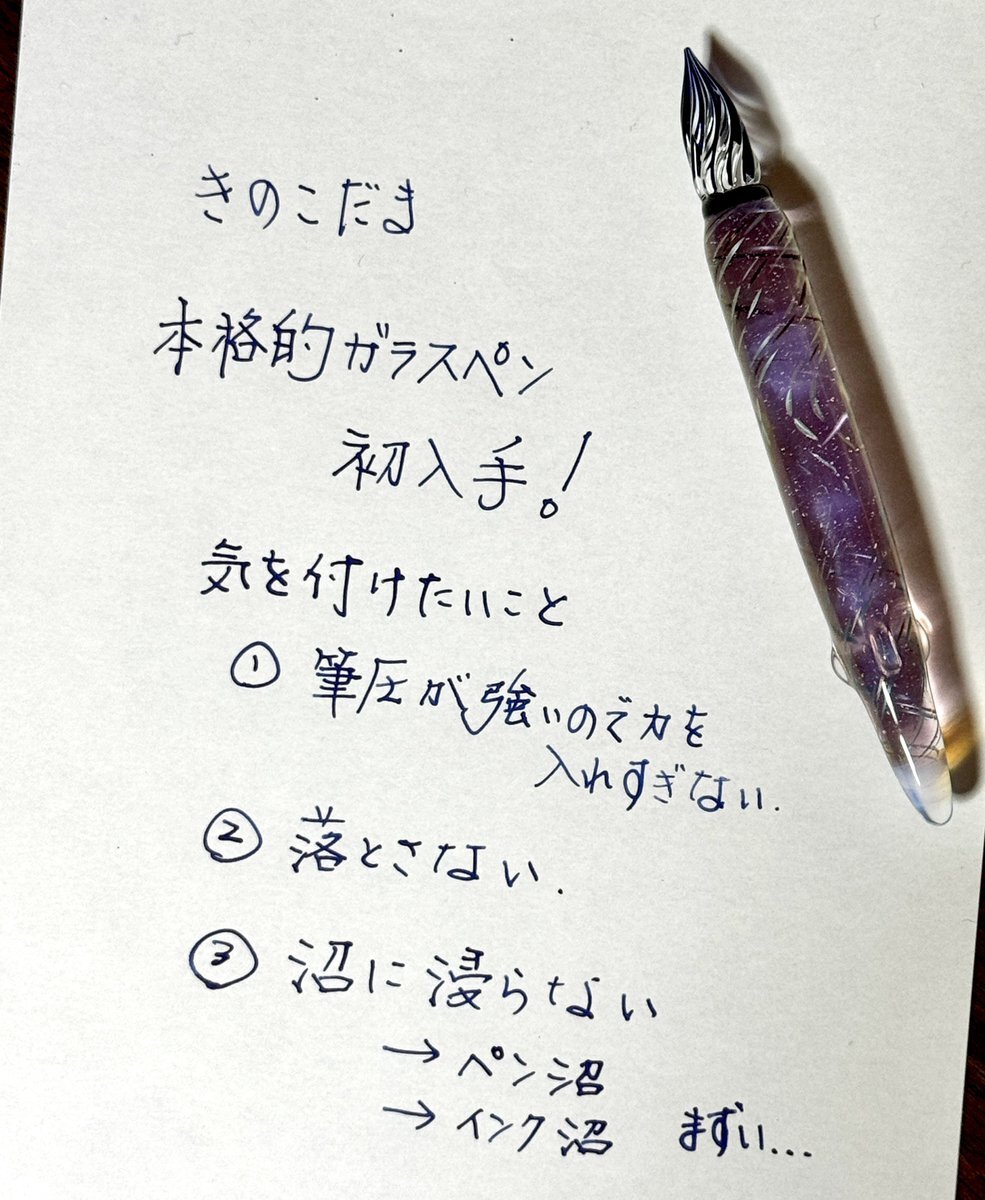 きのこだま
本格的ガラスペン
初入手。!
気を付けたいこと
① 筆圧が強いので力を
入れすぎない.
② 落とさない.
③ 沼に浸らない
→ ペン沼
→ インク沼 まずい...